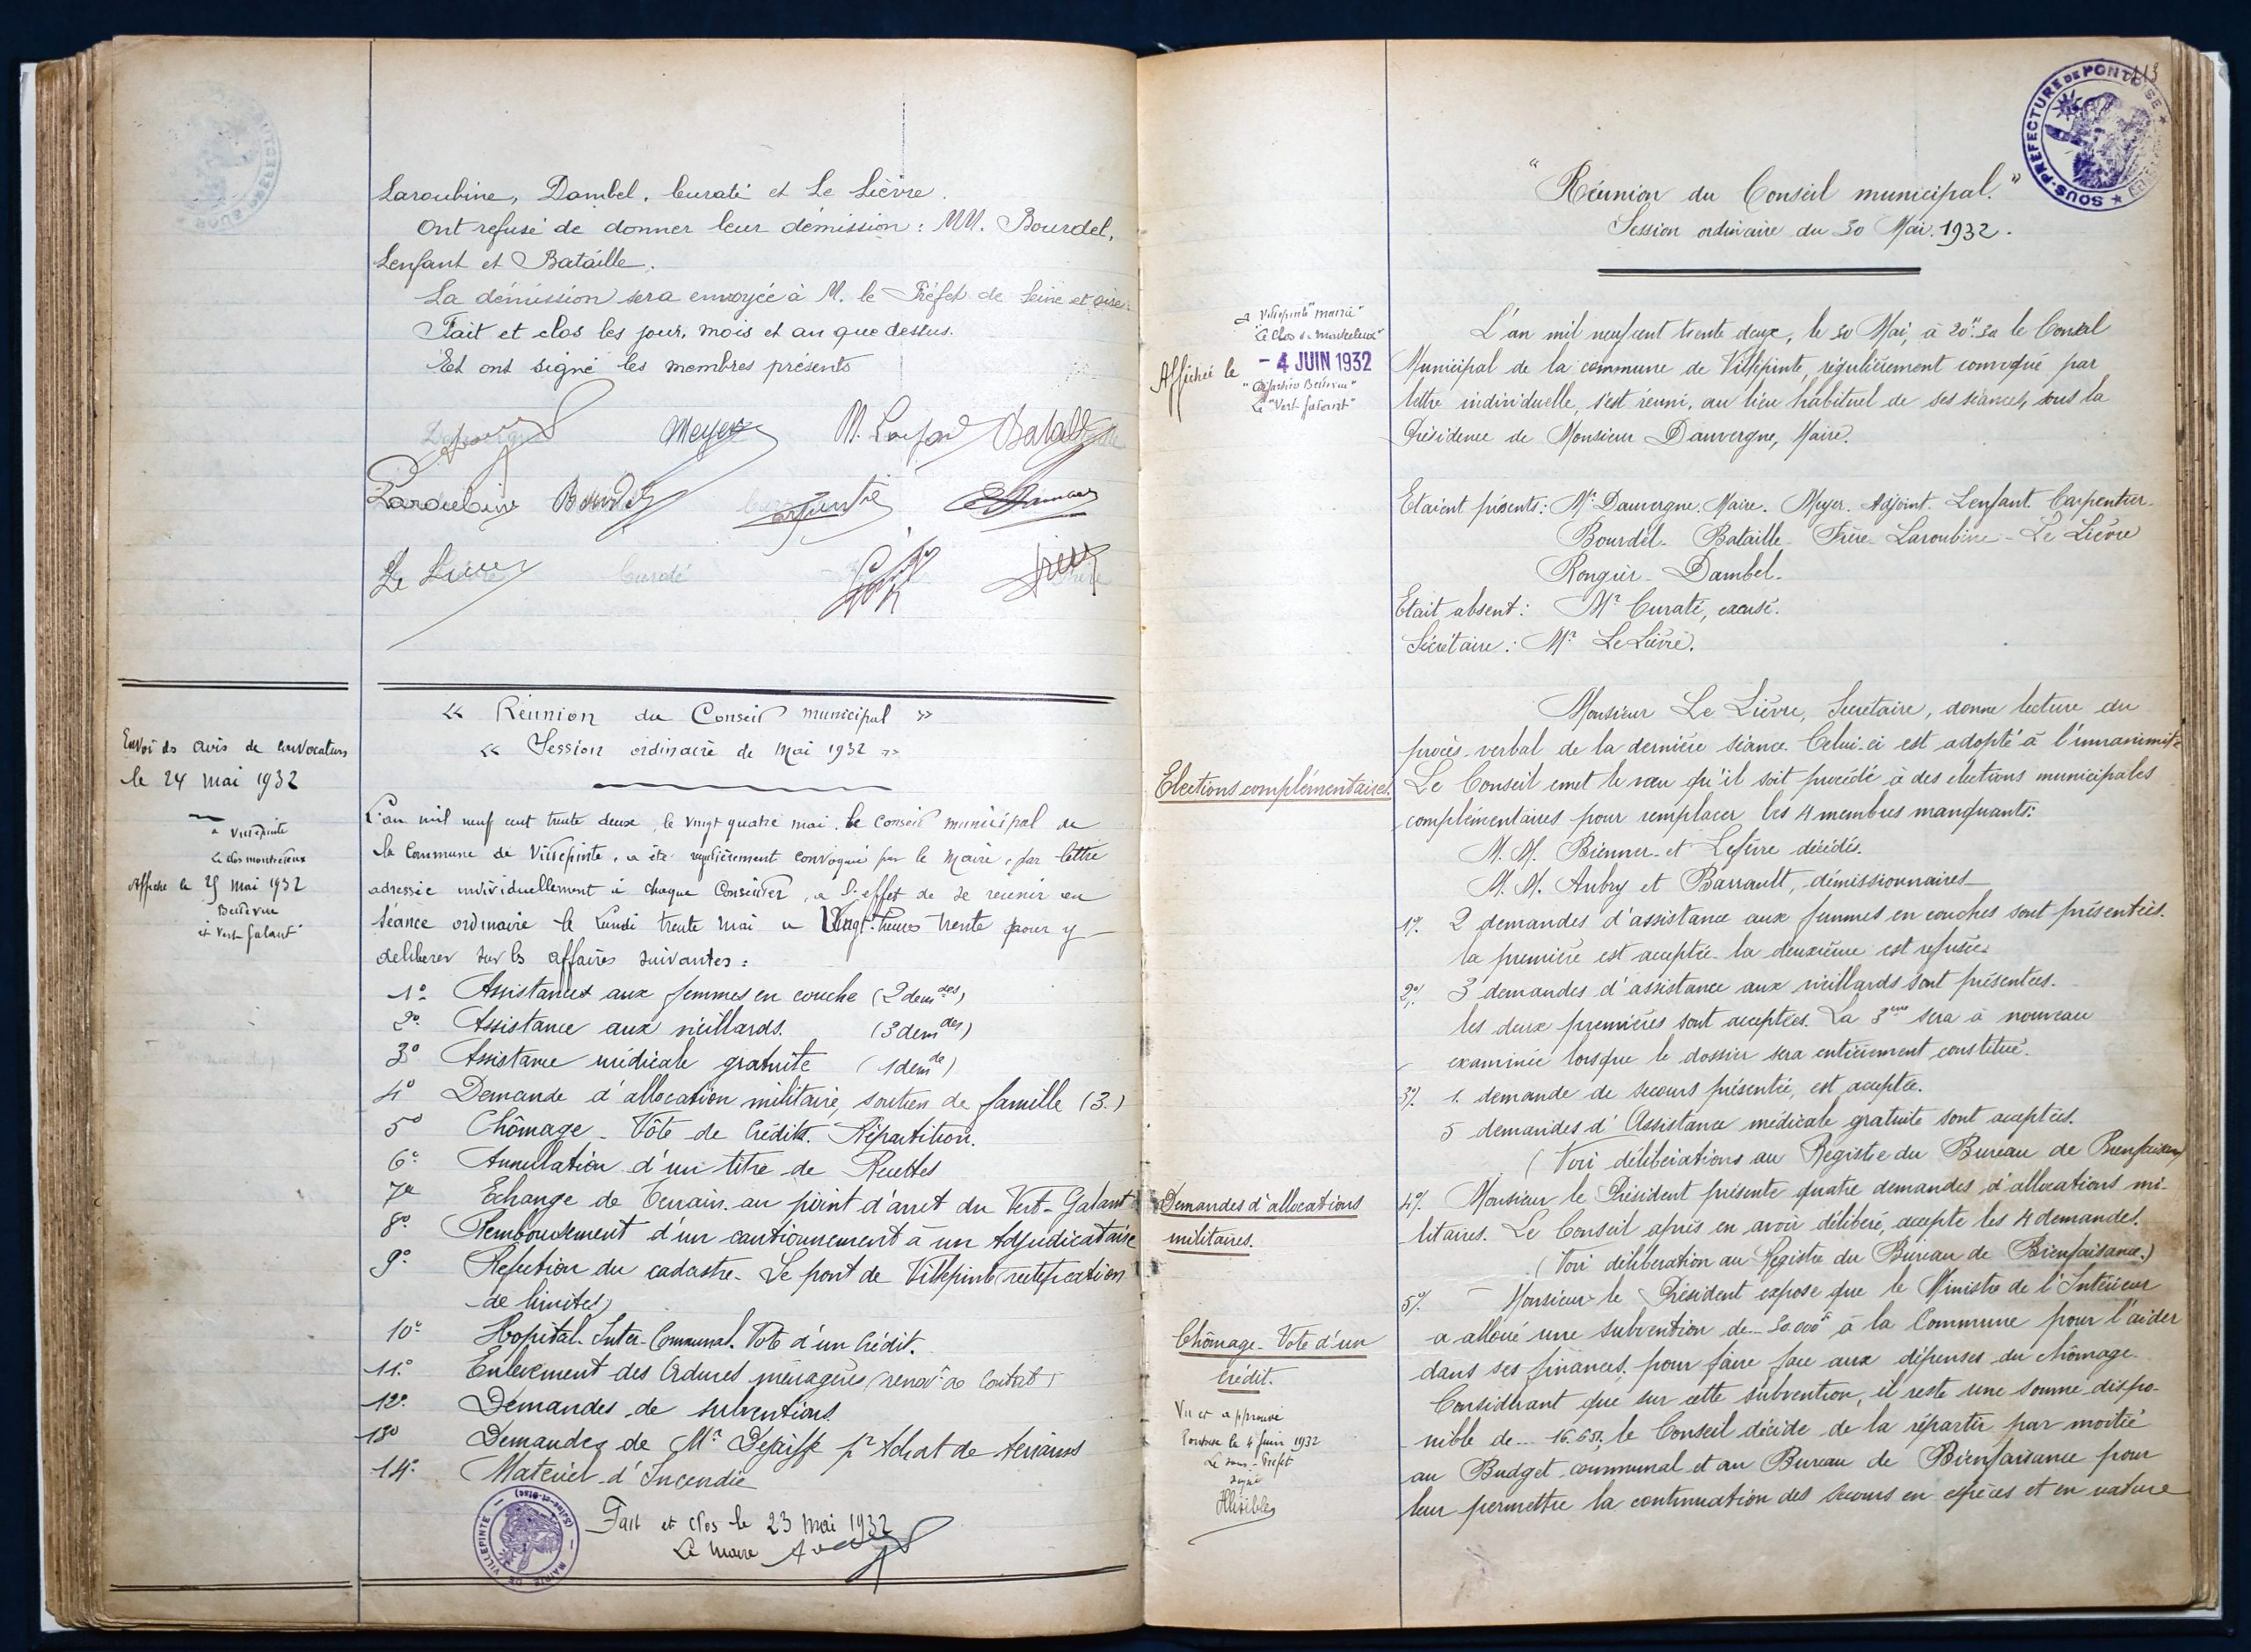 Laroubine, Dambel, Curaté et Le Lièvre.
Ont refusé de donner leur démission : MM. Bourdel,
Lenfant et Bataille.
La démission sera envoyée à M. le Préfet de Seine et Oise.
Fait et clos les jour, mois et an que dessus.
Et ont signé les membres présents
Meyer M. Lenfant Bataille
Laroubine Bourdel Carpentier
Le Lièvre Curaté
« Réunion du Conseil municipal »
« Session ordinaire de Mai 1932 »
Envoi des avis de convocations
le 24 mai 1932
à Villepinte
Le clos montceleux
Affiché le 25 mai 1932
Bellevue
et Vert Galant
L'an mil neuf cent trente deux, le vingt quatre mai, le Conseil municipal de
la Commune de Villepinte, a été régulièrement convoqué par le Maire, par lettre
adressée individuellement à chaque Conseiller, à l'effet de se réunir en
séance ordinaire le Lundi trente mai à Vingt heures trente pour y
delibérer sur les affaires suivantes :
1º Assistances aux femmes en couche (2 demdes)
2º Assistance aux vieillards. (3 demdes)
3º Assistance médicale gratuite (1 demde)
4º Demande d'allocation militaire, soutien de famille (3.)
5º Chômage - Vôte de Crédits. Répartition.
6º Annulation d'un titre de Recettes
7º Echange de Terrain au point d'arret du Vert-Galant
8º Remboursement d'un cautionnement à un Adjudicataire
9º Réfection du cadastre - Le pont de Villepinte (rectification
de limites)
10º Hopital Inter-Communal. Vote d'un Crédit.
11º Enlèvement des Ordures ménagères (renovt de Contrat)
12º Demandes de subventions.
13º Demandes de Mr pr Achat de terrains
14º Materiel d'Incendie
Fait et clos le 23 mai 1932
Le Maire
MAIRIE DE VILLEPINTE (Seine-et-Oise)
113
SOUS-PRÉFECTURE DE PONTOISE
"Réunion du Conseil municipal."
Session ordinaire du 30 Mai 1932.
à Villepinte "mairie"
"Le Clos de Montceleux"
Affiché le - 4 JUIN 1932
Bellevue"
Le "Vert galant"
L'an mil neuf cent trente deux, le 30 Mai, à 20h 30 le Conseil
Municipal de la commune de Villepinte, régulièrement convoqué par
lettre individuelle, s'est réuni, au lieu habituel de ses séances, sous la
Présidence de Monsieur Dauvergne, Maire.
Etaient présents : Mr. Dauvergne, Maire. Meyer. Adjoint. Lenfant. Carpentier.
Bourdel. Bataille. Frère. Laroubine - Le Lièvre
Rongier - Dambel.
Etait absent : Mr Curaté, excusé.
Sécrétaire : Mr Le Lièvre.
Monsieur Le Lièvre, Secrétaire, donne lecture du
procès-verbal de la dernière séance. Celui-ci est adopté à l'unanimité
Elections complémentaires.
Le Conseil emet le vœu qu'il soit procédé à des élections municipales
complémentaires pour remplacer les 4 membres manquants :
M.M. Bienner et Lefèvre décédés.
M.M. Aubry et Barrault, démissionnaires
1º/. 2 demandes d'assistance aux femmes en couches sont présentées.
la première est acceptée - la deuxième est refusée.
2º/. 3 demandes d'assistance aux vieillards sont présentées.
les deux premières sont acceptées. La 3eme sera à nouveau
examinée lorsque le dossier sera entièrement constitué.
3º/. 1 demande de secours présentée, est acceptée.
5 demandes d'Assistance médicale gratuite sont acceptées.
(Voir délibérations au Registre du Bureau de Bienfaisance)
Demandes d'allocations
militaires.
4º/. Monsieur le Président présente quatre demandes d'allocations mi-
litaires. Le Conseil après en avoir délibéré, accepte les 4 demandes.
(Voir délibération au Registre du Bureau de Bienfaisance.)
Chômage - Vote d'un
Crédit.
Vu et approuvé
Pontoise le 4 Juin 1932
Le Sous-Préfet
signé
Illisible
5º/. Monsieur le Président expose que le Ministre de l'Intérieur
a alloué une subvention de 50.000f à la Commune pour l'aider
dans ses finances, pour faire face aux dépenses du chômage.
Considérant que sur cette subvention, il reste une somme dispo-
nible de le Conseil décide de la répartir par moitié
au Budget communal et au Bureau de Bienfaisance pour
leur permettre la continuation des secours en espèces et en nature